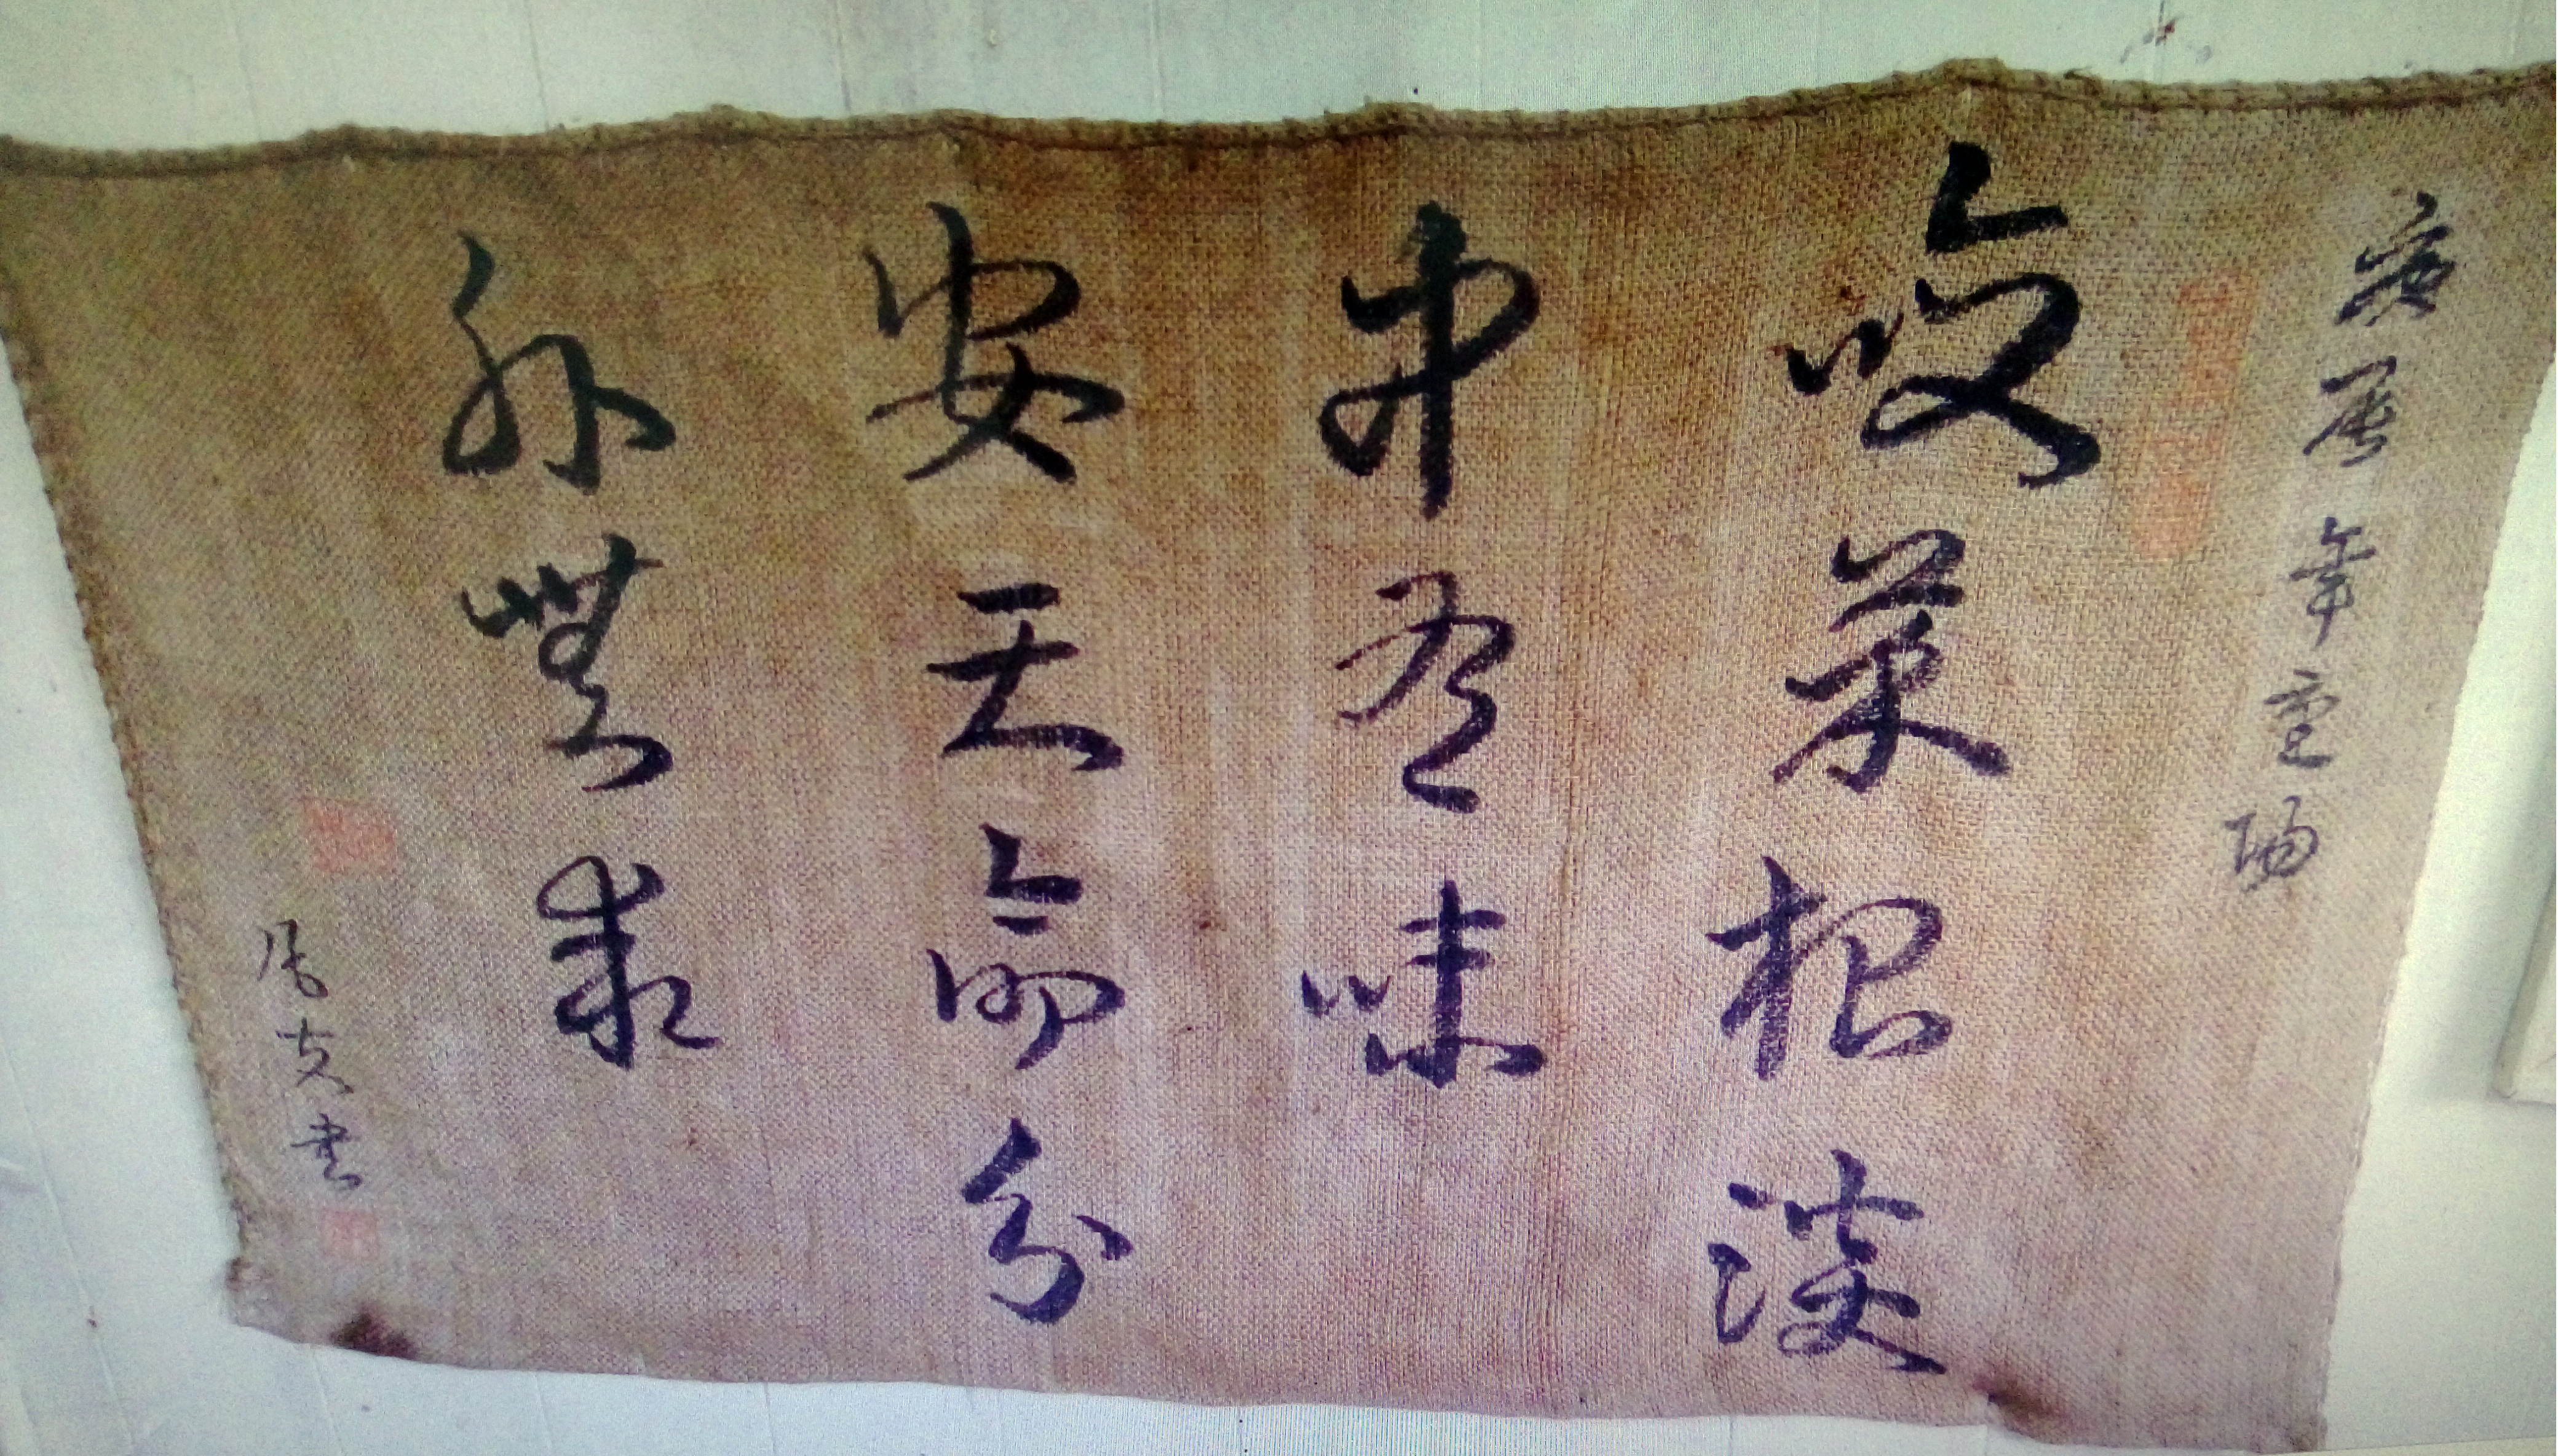 庚辰年重陽
咬菜根淡
中有味
安天命分
外無求
書